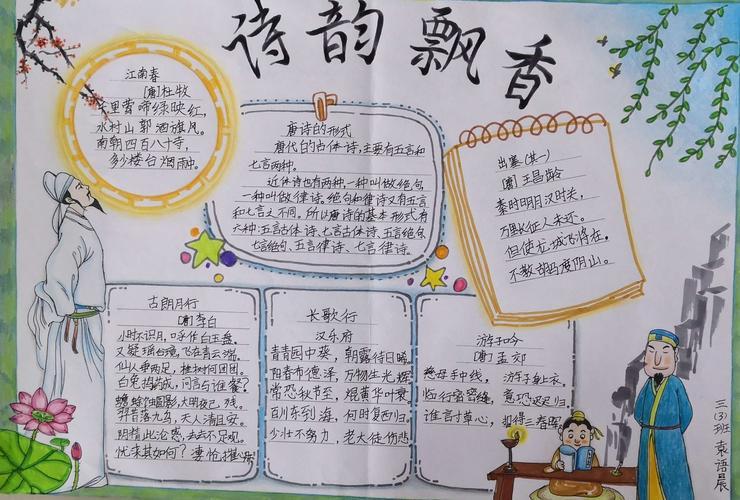 诗韵飘香
江南春
[唐]杜牧
千里莺啼绿映红,
水村山郭酒旗风。
南朝四百八十寺,
多少楼台烟雨中。
唐诗的形式
唐代的古体诗,主要有五言和
七言两种。
近体诗也有两种,一种叫做绝句,
一种叫做律诗。绝句和律诗又有五言
和七言之不同。所以唐诗的基本形式有
六种:五言古体诗、七言古体诗、五言绝句
七言绝句、五言律诗、七言律诗。
出塞(其一)
[唐]王昌龄
秦时明月汉时关,
万里长征人未还。
但使龙城飞将在,
不教胡马度阴山。
古朗月行
[唐]李白
小时不识月,呼作白玉盘。
又疑瑶台镜,飞在青云端。
仙人垂两足,桂树何团团。
白兔捣药成,问言与谁餐?
蟾蜍蚀圆影,大明夜已残。
羿昔落九乌,天人清且安。
阴精此沦惑,去去不足观。
忧来其如何?凄怆摧心肝
长歌行
汉乐府
青青园中葵,朝露待日晞。
阳春布德泽,万物生光辉
常恐秋节至,焜黄华叶衰
百川东到海,何时复西归
少壮不努力,老大徒伤悲
游子吟
[唐]孟郊
慈母手中线,游子身上衣。
临行密密缝,意恐迟迟归。
谁言寸草心,报得三春晖
三(3)班 袁语晨